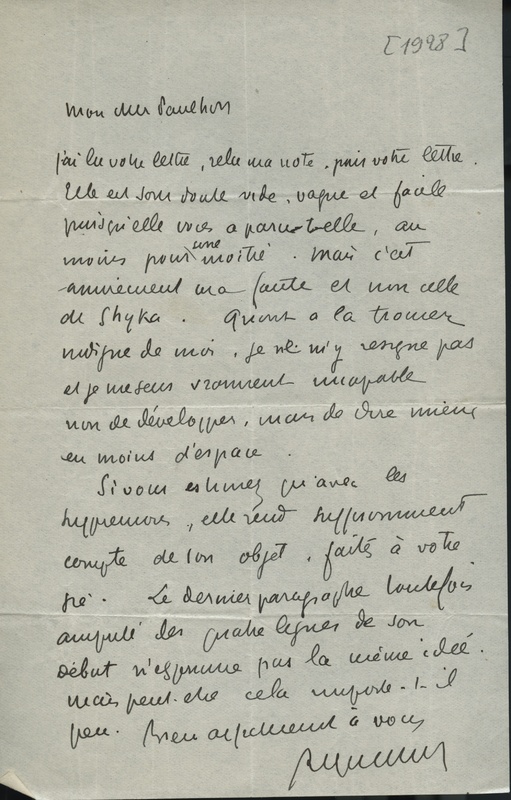 [1928]
Mon cher Paulhan
j'ai lu votre lettre, relu ma note, puis votre lettre.
Elle est sans doute vide, vague et facile
puisqu'elle vous a paru telle, au
moins pour une moitié. Mais c'est
sûrement ma faute et non celle
de Shyka. Quant a la trouver
indigne de moi, je ne m'y resigne pas
et je me sens vraiment incapable
non de développer, mais de dire mieux
en moins d'espace.
Si vous estimez qu'avec les
, elle rend suffisamment
compte de son objet, faites à votre
gré. Le dernier paragraphe toutefois
amputé des quatre lignes de son
début n'exprime pas la même idée.
Mais peut-être cela importe-t-il
peu. Bien à vous